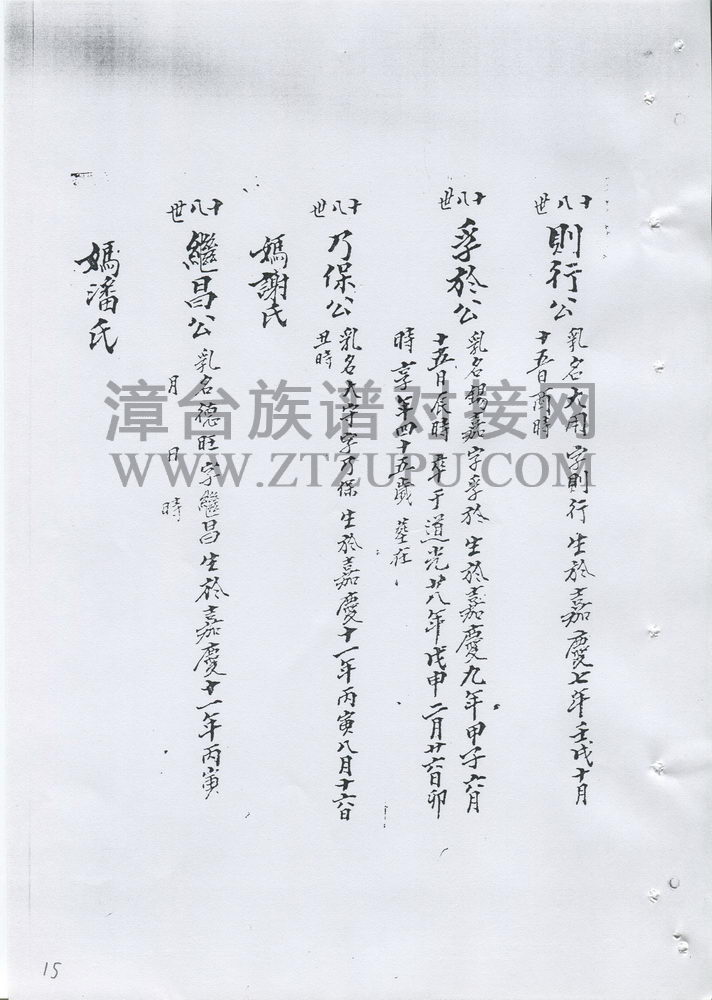 十八世
則行公
乳名大用 字則行 生於嘉慶七年壬戌十月
十五日酉時
十八世
孚於公
乳名楊嘉字孚於 生於嘉慶九年甲子六月
十五日辰時 卒于道光廿八年戊申二月廿六日卯
時 享年四十五歲 葬在
十八世
乃保公
乳名大守字乃保 生於嘉慶十一年丙寅八月十六日
丑時
媽謝氏
十八世
繼昌公
乳名德旺字繼昌 生於嘉慶十一年丙寅
月 日 時
媽潘氏
漳台族谱对接网
WWW.ZTZUPU.COM
15